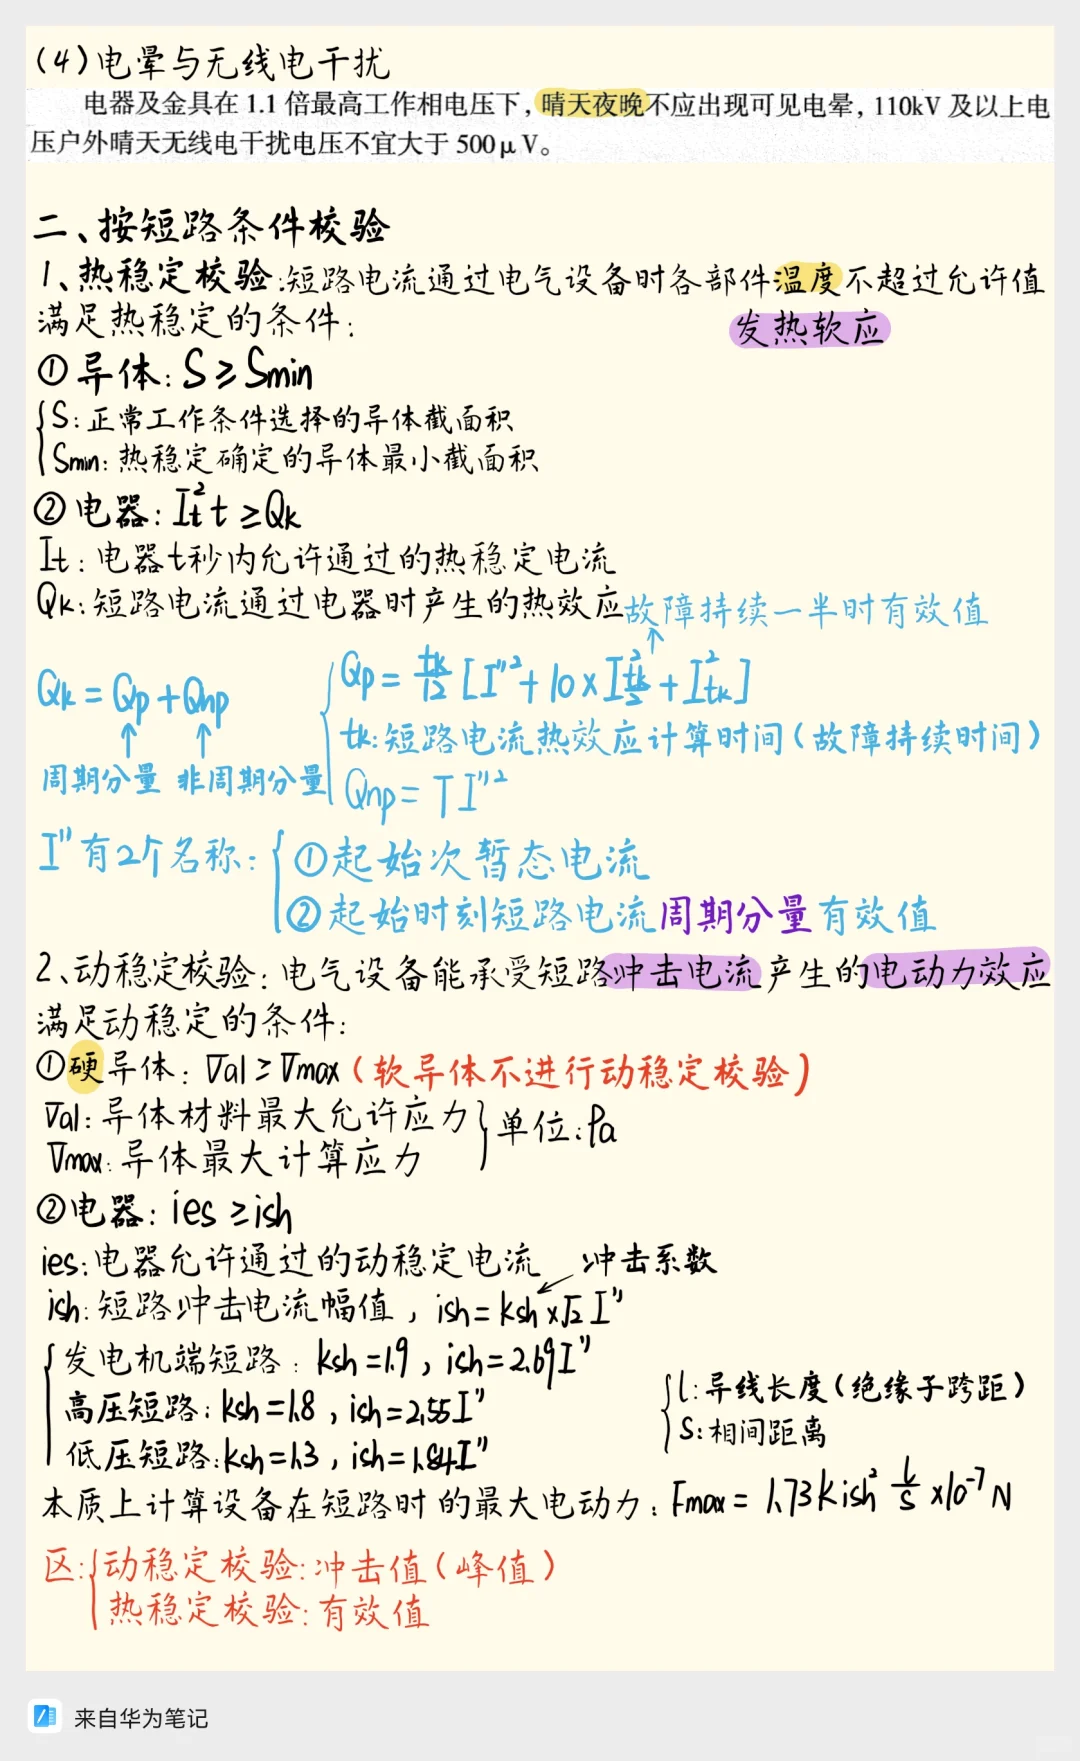 (4)电晕与无线电干扰
电器及金具在 1.1 倍最高工作相电压下，晴天夜晚不应出现可见电晕，110kV 及以上电
压户外晴天无线电干扰电压不宜大于 500μV。
二、按短路条件校验
1、热稳定校验:短路电流通过电气设备时各部件温度不超过允许值
满足热稳定的条件:
发热软应
①导体: S≥Smin
S:正常工作条件选择的导体截面积
Smin:热稳定确定的导体最小截面积
②电器: It²t ≥Qk
It:电器t秒内允许通过的热稳定电流
Qk:短路电流通过电器时产生的热效应
故障持续一半时有效值
Qk=Qp+Qnp
周期分量 非周期分量
Qp= tk/12 [I″²+10×I²tk/2+I²tk]
tk:短路电流热效应计算时间(故障持续时间)
Qnp=TI″²
I″有2个名称:
①起始次暂态电流
②起始时刻短路电流周期分量有效值
2、动稳定校验:电气设备能承受短路冲击电流产生的电动力效应
满足动稳定的条件:
①硬导体: σal≥σmax(软导体不进行动稳定校验)
σal:导体材料最大允许应力
σmax:导体最大计算应力
单位:Pa
②电器: ies≥ish
ies:电器允许通过的动稳定电流
冲击系数
ish:短路冲击电流幅值, ish=ksh×√2 I″
发电机端短路: ksh=1.9, ish=2.69I″
高压短路: ksh=1.8, ish=2.55I″
低压短路:ksh=1.3, ish=1.84I″
l:导线长度(绝缘子跨距)
S:相间距离
本质上计算设备在短路时的最大电动力: Fmax= 1.73Kish² l/s ×10⁻⁷N
区:
动稳定校验:冲击值(峰值)
热稳定校验:有效值
来自华为笔记